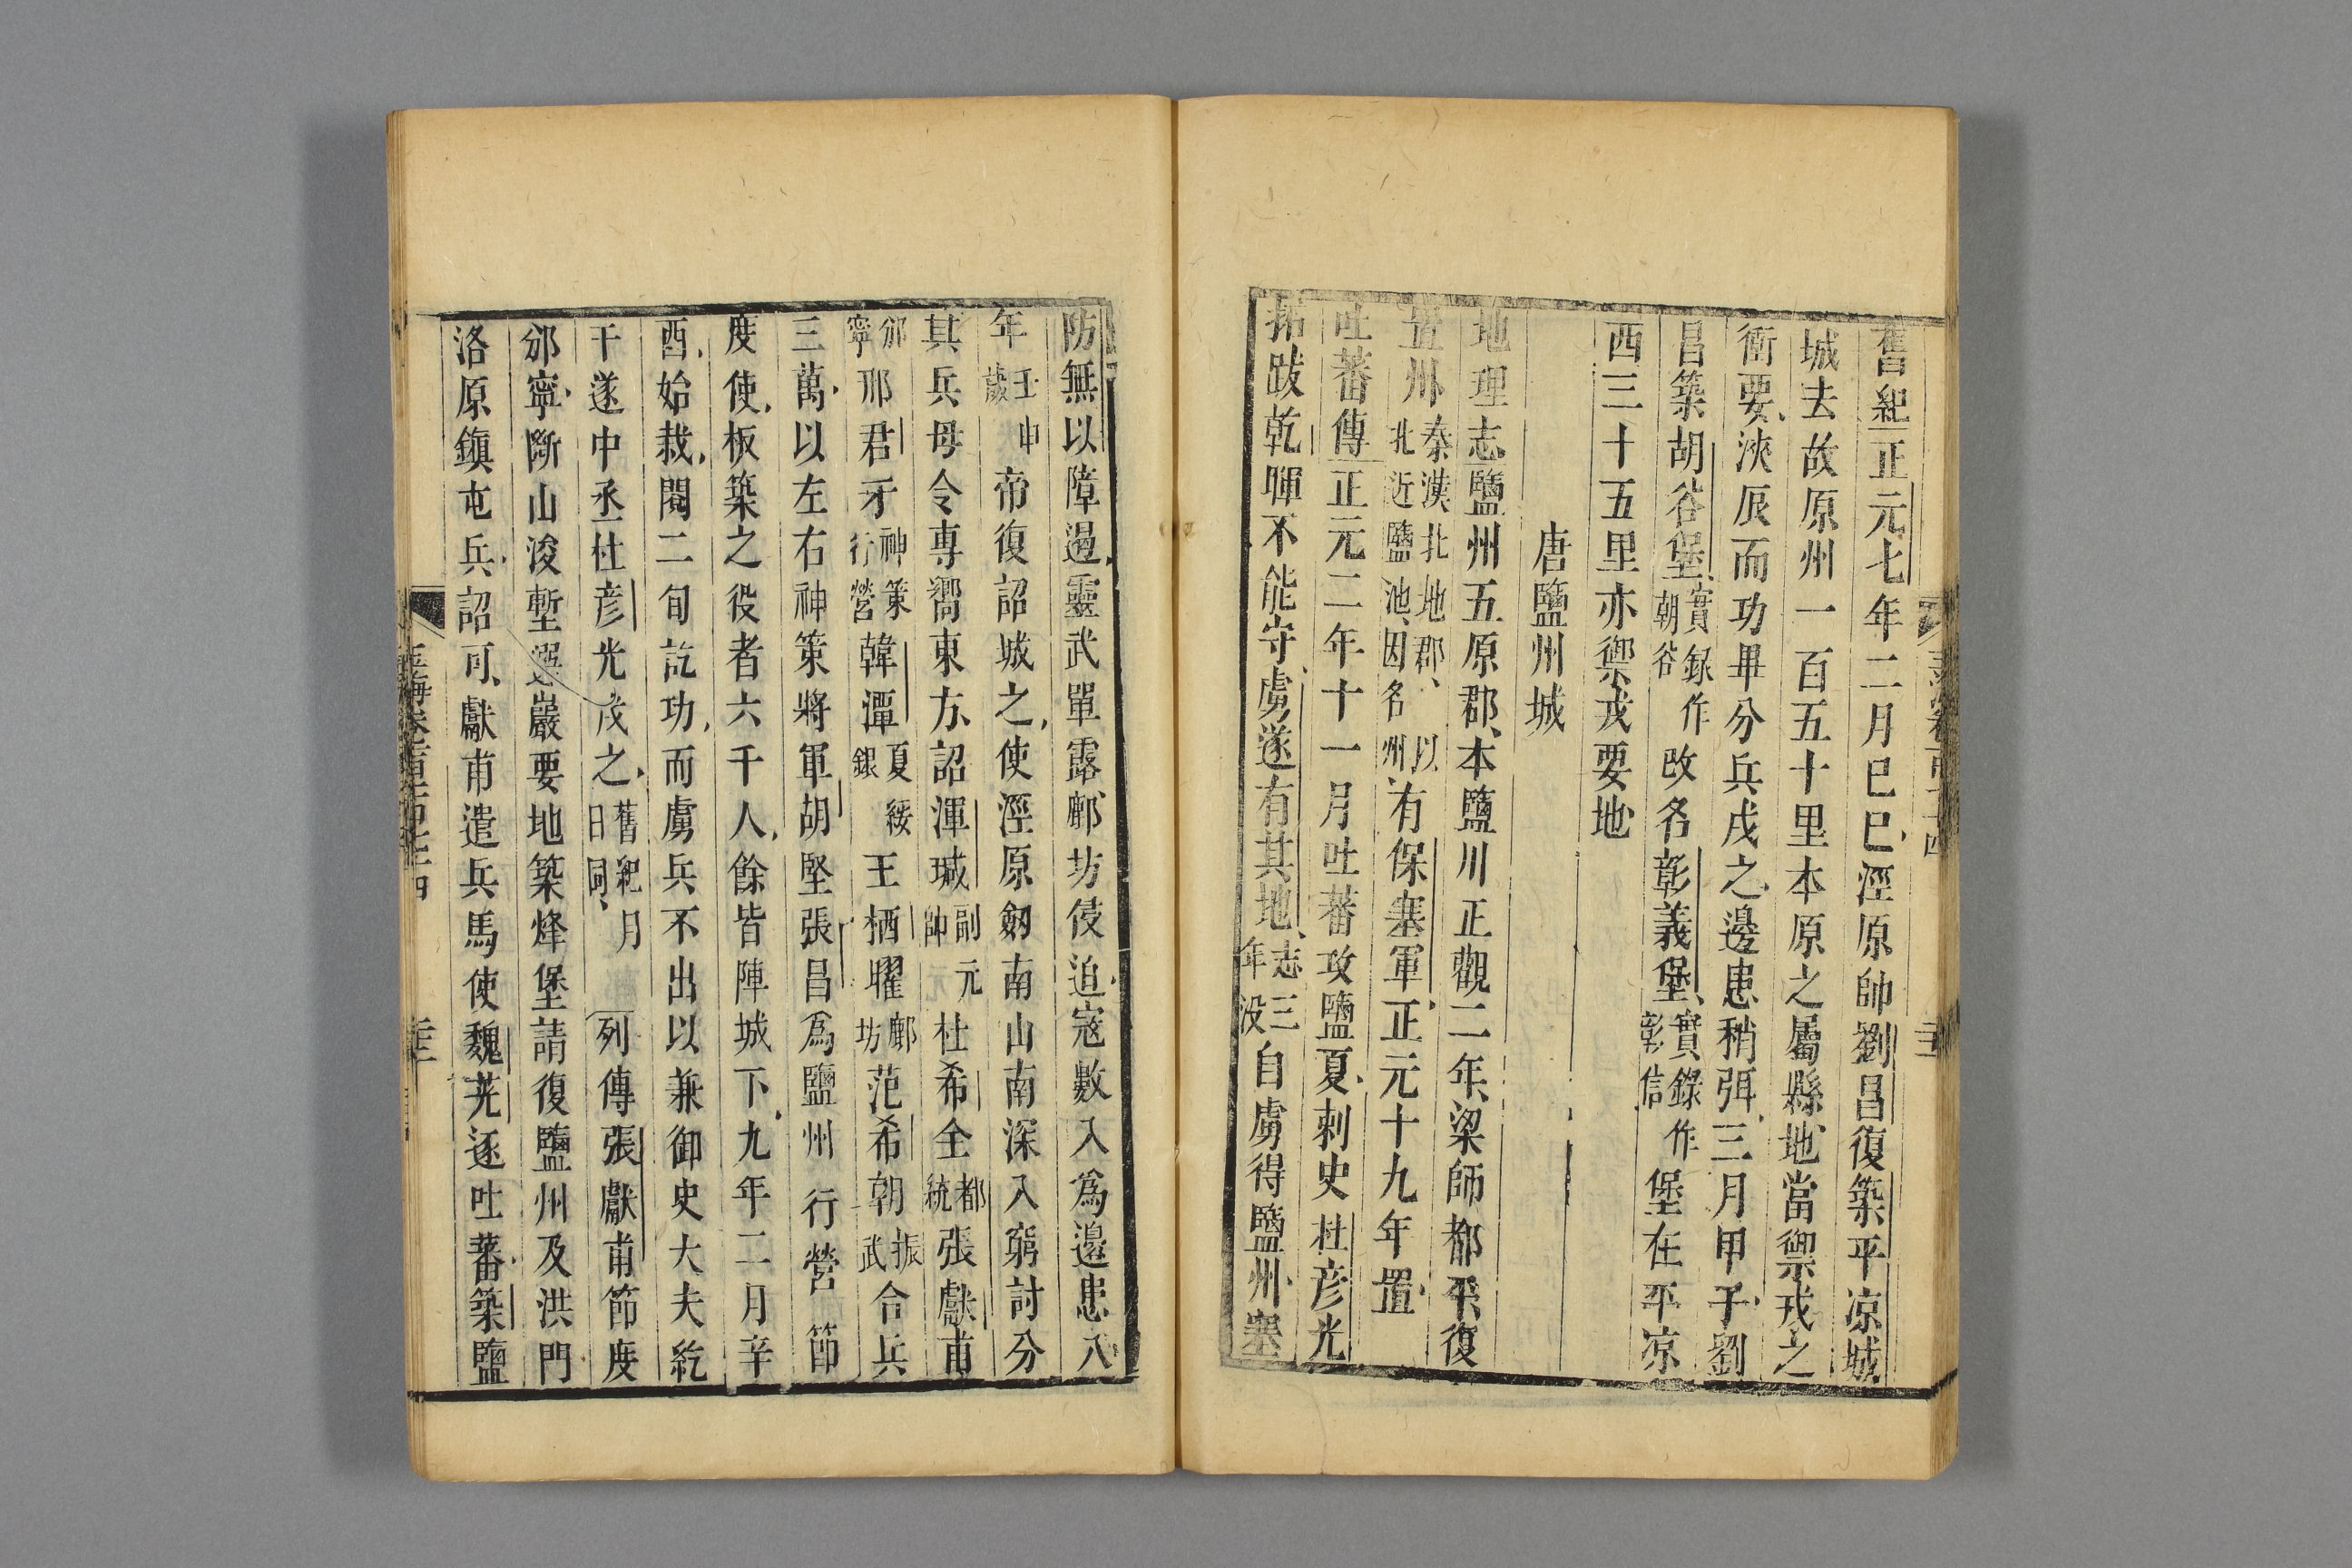 舊紀正元七年二月巳巳涇原帥劉昌復築平凉城
城去故原州一百五十里本原之屬縣地當禦戎之
衝要浹辰而功畢分兵戍之邊患稍弭三月甲子劉
昌築胡谷堡實錄作朝谷改名彰義堡實錄作彰信堡在平凉
西三十五里亦禦戎要地
唐鹽州城
地理志鹽州五原郡本鹽川正觀二年梁師都平復
置州秦漢北地郡以北近鹽池因名州有保塞軍正元十九年置
吐蕃傳正元二年十一月吐蕃攻鹽夏刺史杜彦光
拓跋乾暉不能守虜遂有其地志三年没自虜得鹽州塞
防無以障遏靈武單露鄜坊侵迫寇數入爲邊患八
年壬申歲帝復詔城之使涇原劒南山南深入窮討分
其兵毋令專嚮東方詔渾瑊副元帥杜希全都統張獻甫
邠寧邢君牙神策行營韓潭夏綏銀王栖曜鄜坊范希朝振武合兵
三萬以左右神策將軍胡堅張昌爲鹽州行營節
度使板築之役者六千人餘皆陣城下九年二月辛
酉始栽閱二旬訖功而虜兵不出以兼御史大夫紇
干遂中丞杜彦光戍之舊紀月日同列傳張獻甫節度
邠寧斷山浚塹選巖要地築烽堡請復鹽州及洪門
洛原鎮屯兵詔可獻甫遣兵馬使魏茪逐吐蕃築鹽
玉海卷一百七十四